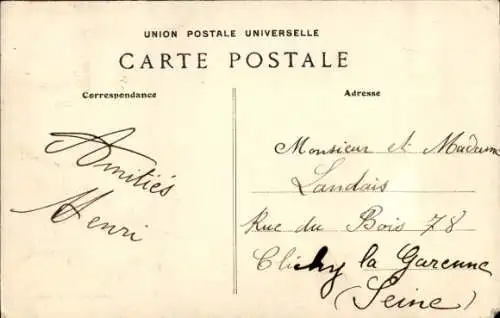 UNION POSTALE UNIVERSELLE
CARTE POSTALE
Correspondance
Amitiés
Henri
Adresse
Monsieur et Madame
Landais
Rue du Bois 78
Clichy la Garenne
(Seine)